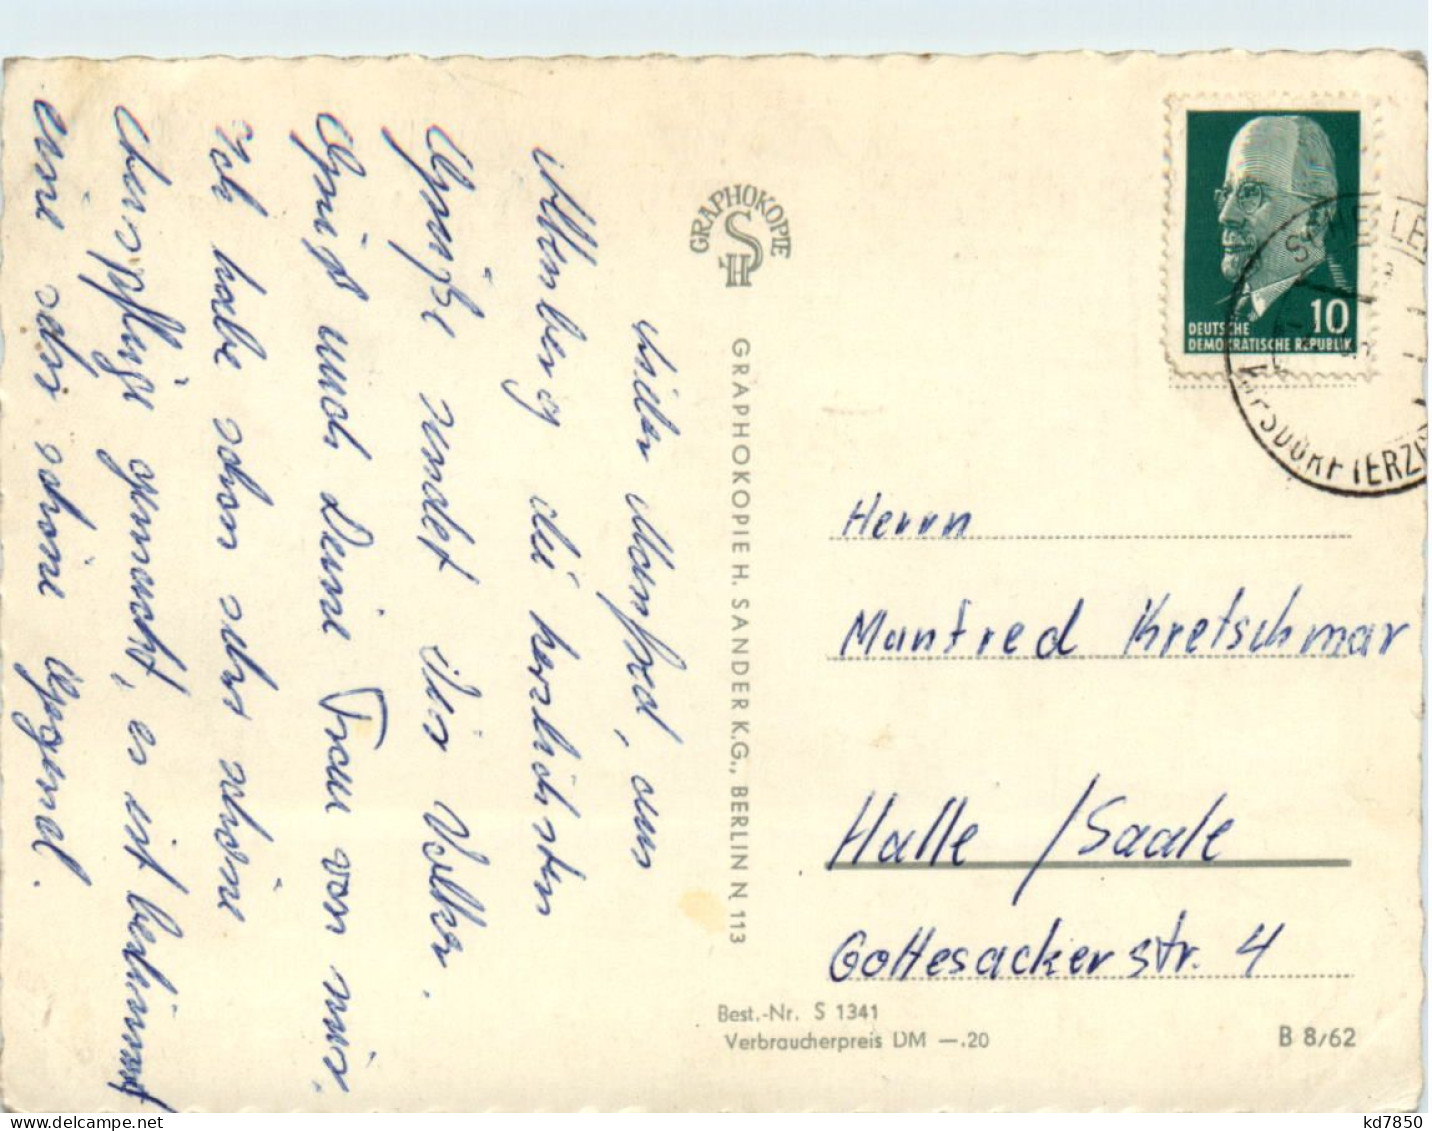 Lieber Manfred, aus
Altenberg die herzlichsten
Grüße sendet Dir Volker.
Grüß auch Deine Frau von mir.
Ich habe schon sehr schöne
Ausflüge gemacht, es ist bestimmt
eine sehr schöne Gegend.
GRAPHOKOPIE
H S
GRAPHOKOPIE H. SANDER K.G., BERLIN N 113
10
DEUTSCHE
DEMOKRATISCHE REPUBLIK
Herrn
Manfred Kretschmar
Halle /Saale
Gottesackerstr. 4
Best.-Nr. S 1341
Verbraucherpreis DM —.20
B 8/62
kd7850